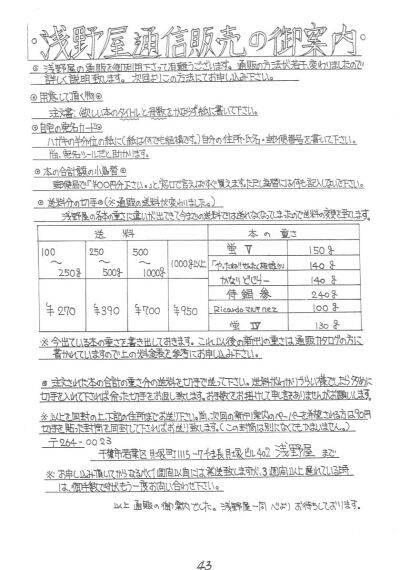 ・浅野屋通信販売の御案内・
◎ 浅野屋の通販を御利用下さって有難うございます。通販の方法が若干、変わりましたので
詳しく説明致します。次回よりこの方法にてお申し込み下さい。
◎用意して頂く物◎
注文書：欲しい本のタイトルと冊数をかならず紙に書いて下さい。
◎自宅の宛名カード◎
ハガキの半分位の紙に(紙は何でも結構です。)自分の住所・氏名・郵便番号を書いて下さい。
尚、宛名シールだと助かります。
◎本の合計金額の小為替◎
郵便局で「¥〇〇円分下さい。」と窓口で言えばすぐ買えます。ただし為替には何も記入しないで下さい。
◎送料分の切手◎(※通販の送料が変わりました。)
浅野屋の各本の重さに違いが出てきて今までの送料では送れなくなってしまったので送料の変更を致します。
送料
本の重さ
100
〜
250g
250
〜
500g
500
〜
1000g
1000g以上
¥270
¥390
¥700
¥950
蛍 V
150g
140g
かなりどせいナー
140g
侍銀参
240g
Ricardo martinez
100g
蛍 IV
130g
※今出ている本の重さを書き出しておきます。これ以後の新刊の重さは通販カタログの方に
書かれていますので上の料金表を参考にお申し込み下さい。
◎注文された本の合計の重さ分の送料を切手で送って下さい。送料がわかりづらい様でしたら多めに
切手を入れて下されば余った切手をお返し致します。お手数をお掛けして申し訳ありませんがお願いします。
※以上を同封の上、下記の住所までお送り下さい。尚、次回の新刊案内のペーパーを希望される方は90円
切手を貼った封筒を同封して下さればお送り致します。(この封筒は別になくてもかまいません。)
〒264-0023
浅野屋 まで
※お申し込み頂いてからなるべく1週間以内には発送致しますが、3週間以上遅れている時
は、御手数ですがもう一度お問い合わせ下さい。
以上 通販の御案内でした。浅野屋一同 心よりお待ちしております。
43